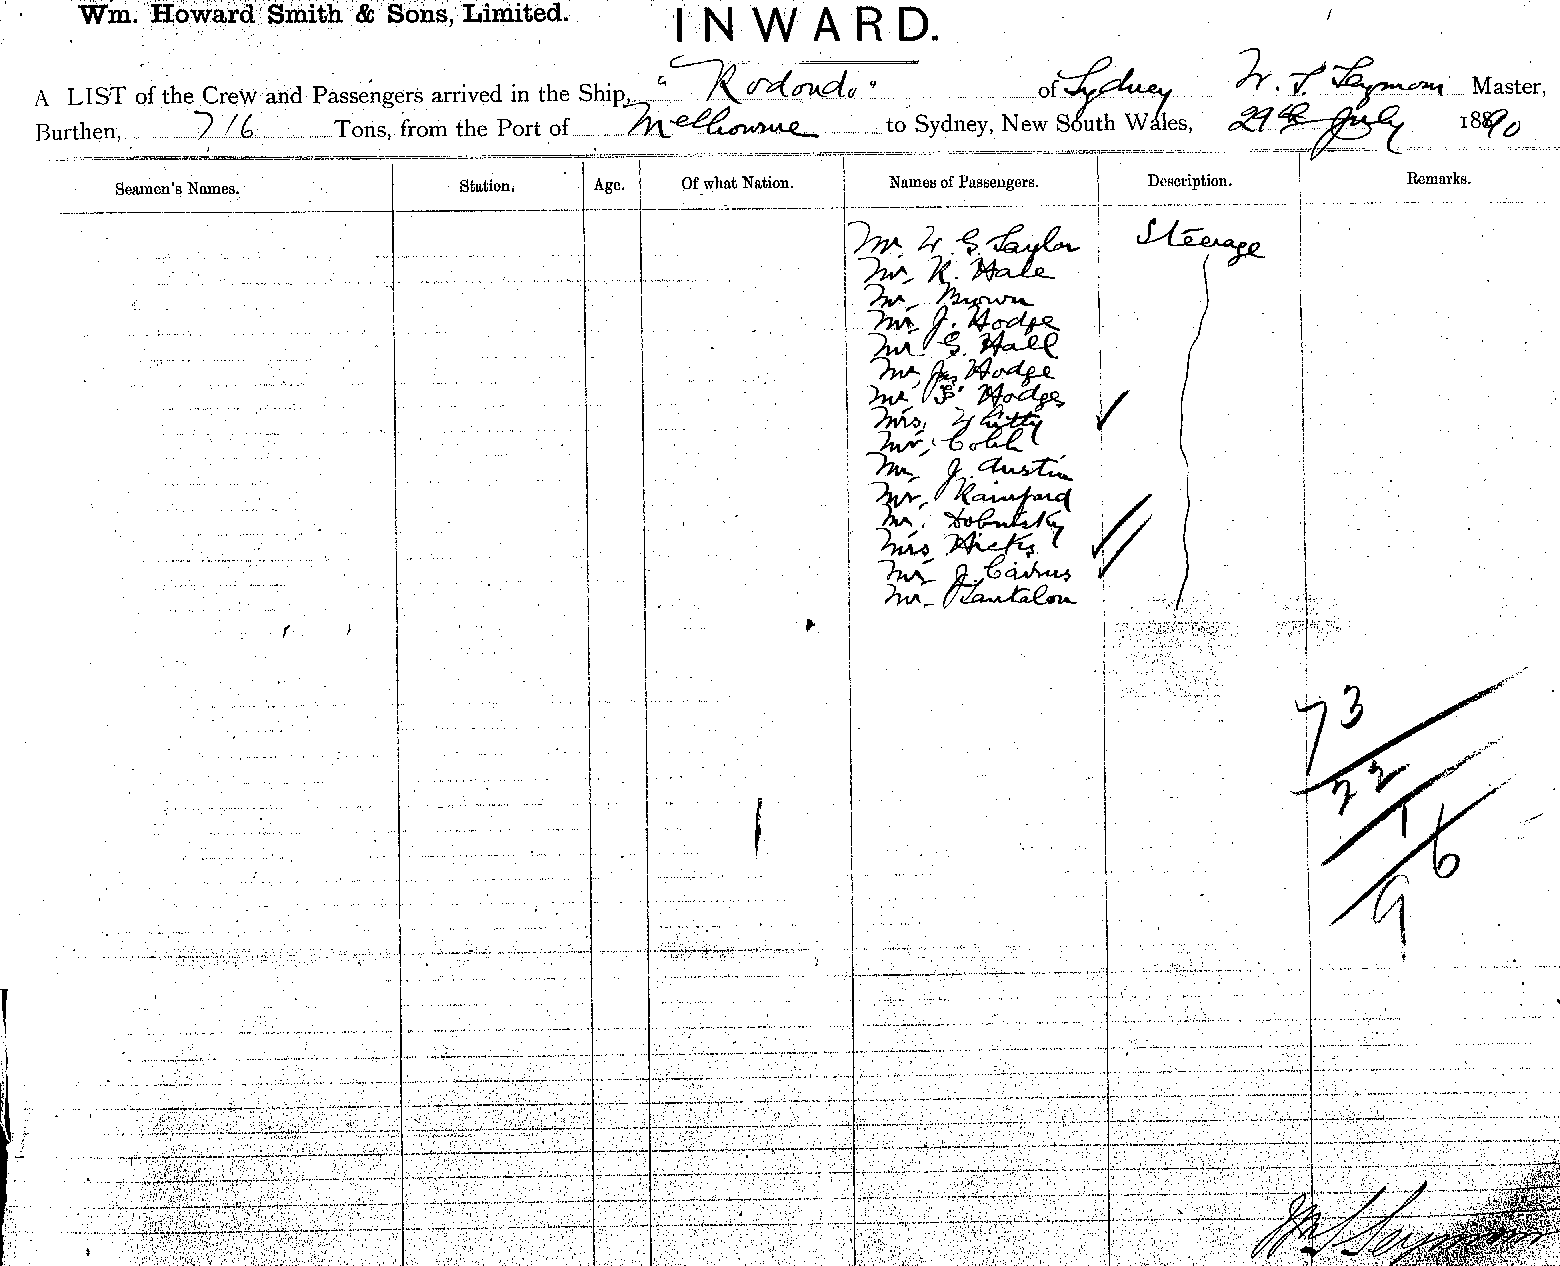 Wm. Howard Smith & Sons, Limited.
INWARD.
A LIST of the Crew and Passengers arrived in the Ship, "Rodondo" of Sydney W. S. Seymour Master,
Burthen, 716 Tons, from the Port of Melbourne to Sydney, New South Wales, 29th July 1890
Seamen's Names. Station. Age. Of what Nation. Names of Passengers. Description. Remarks.
Mr. W. G. Taylor Steerage
Mr. R. Hale
Mr. Brown
Mr. J. Hodge
Mr. G. Hall
Mr. Jas Hodge
Mr. Hodges
Mrs. Whitty
Mr. Cobb
Mr. J. Austin
Mr. Rainford
Mr.
Mrs Hicks
Mr. J. Cairns
Mr. Pantalon
73
22
1
6
9
Wm S Seymour